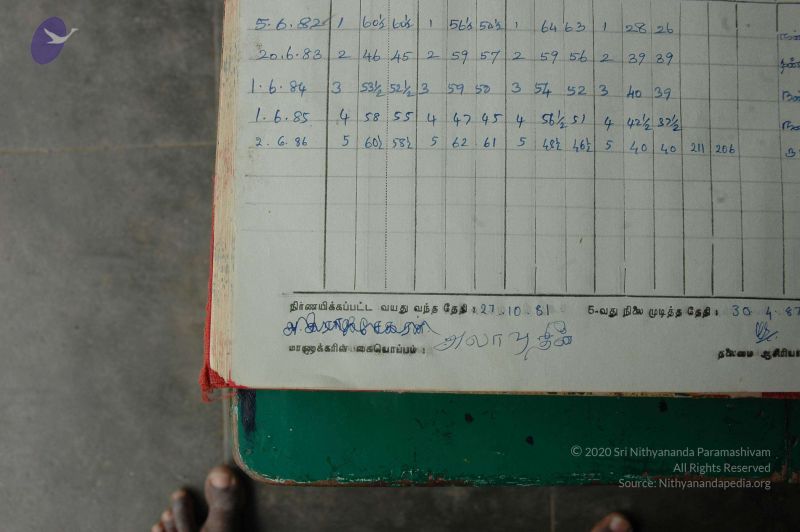 5.6.82 1 60½ 60½ 1 56½ 50½ 1 64 63 1 28 26
20.6.83 2 46 45 2 59 57 2 59 56 2 39 39
1.6.84 3 53½ 52½ 3 59 50 3 54 52 3 40 39
1.6.85 4 58 55 4 47 45 4 56½ 51 4 42½ 37½
2.6.86 5 60½ 58½ 5 62 61 5 48½ 46½ 5 40 40 211 206
நிர்ணயிக்கப்பட்ட வயது வந்த தேதி : 27.10.81 5-வது நிலை முடித்த தேதி : 30.4.87
மாணாக்கரின் கையொப்பம் : தலைமை
© 2020 Sri Nithyananda Paramashivam
All Rights Reserved
Source: Nithyanandapedia.org